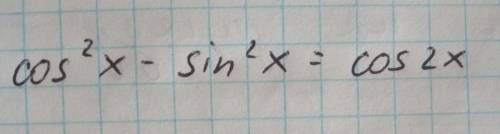 cos²x - sin²x = cos2x